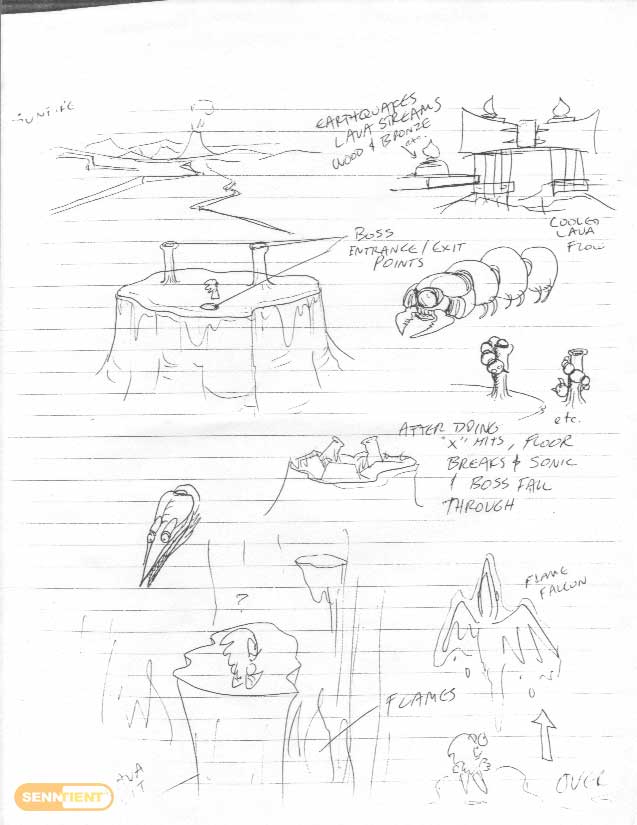 EARTHQUAKES
LAVA STREAMS
WOOD & BRONZE
etc.
COOLED
LAVA
FLOW
BOSS
ENTRANCE/EXIT
POINTS
etc.
AFTER DOING
"X" HITS, FLOOR
BREAKS & SONIC
& BOSS FALL
THROUGH
?
FLAME
FALCON
FLAMES
OVER
SENNTIENT